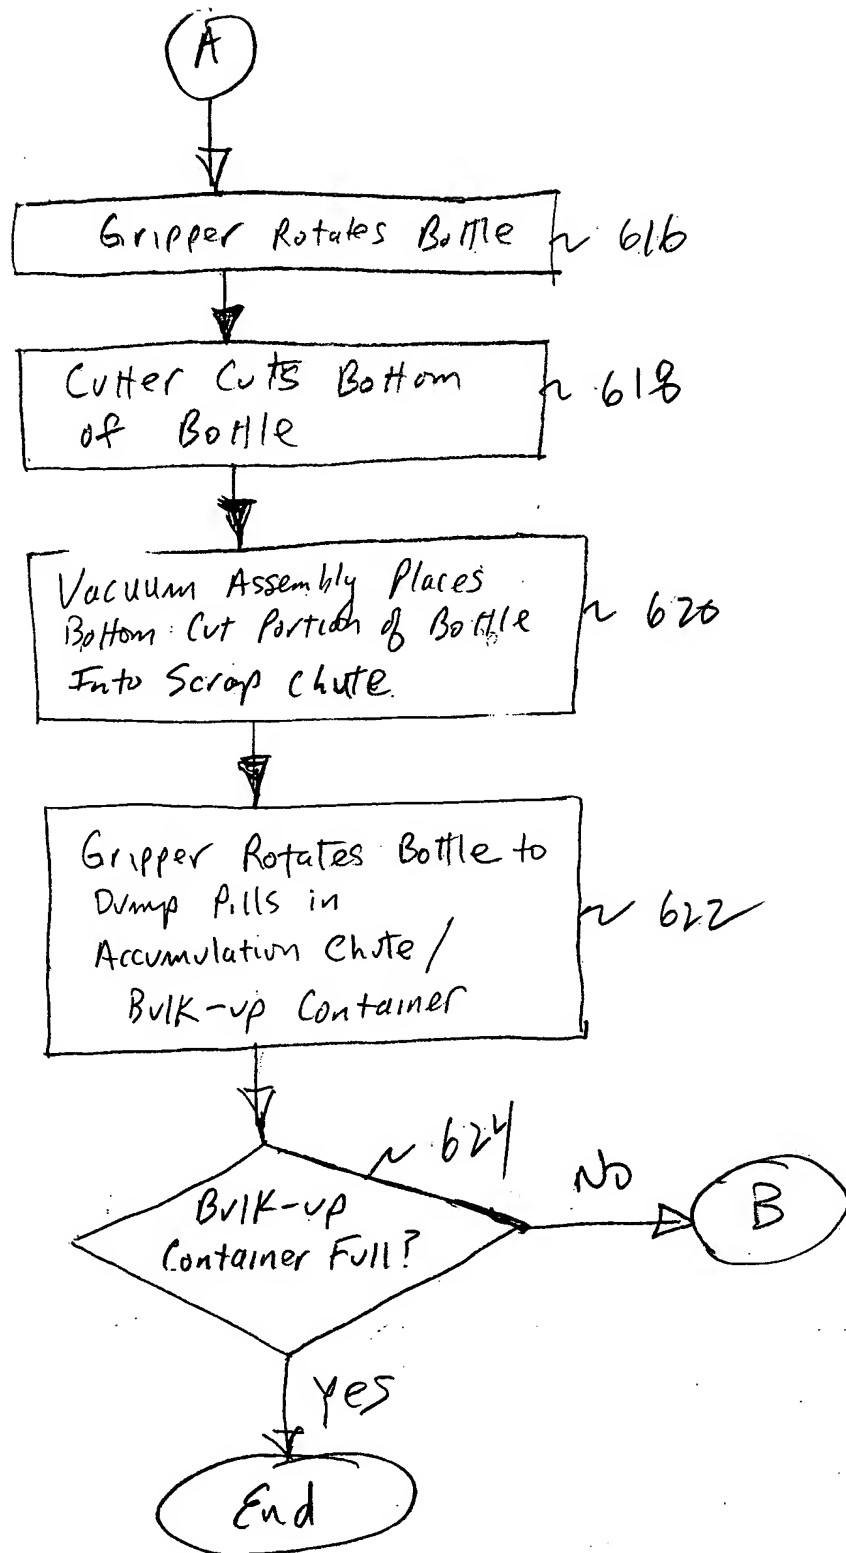 A
Gripper Rotates Bottle ~ 616
Cutter Cuts Bottom
of Bottle
~ 618
Vacuum Assembly Places
Bottom Cut Portion of Bottle
Into Scrap Chute.
~ 620
Gripper Rotates Bottle to
Dump Pills in
Accumulation Chute/
Bulk-up Container
~ 622
~ 624
Bulk-up
Container Full?
No
B
Yes
End